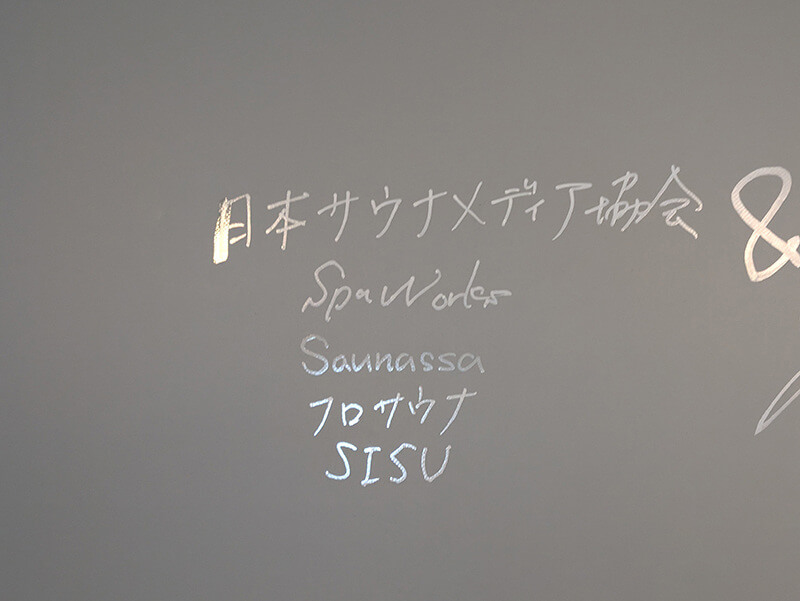 日本サウナメディア協会 &
SpaWorks
Saunassa
フロサウナ
SISU